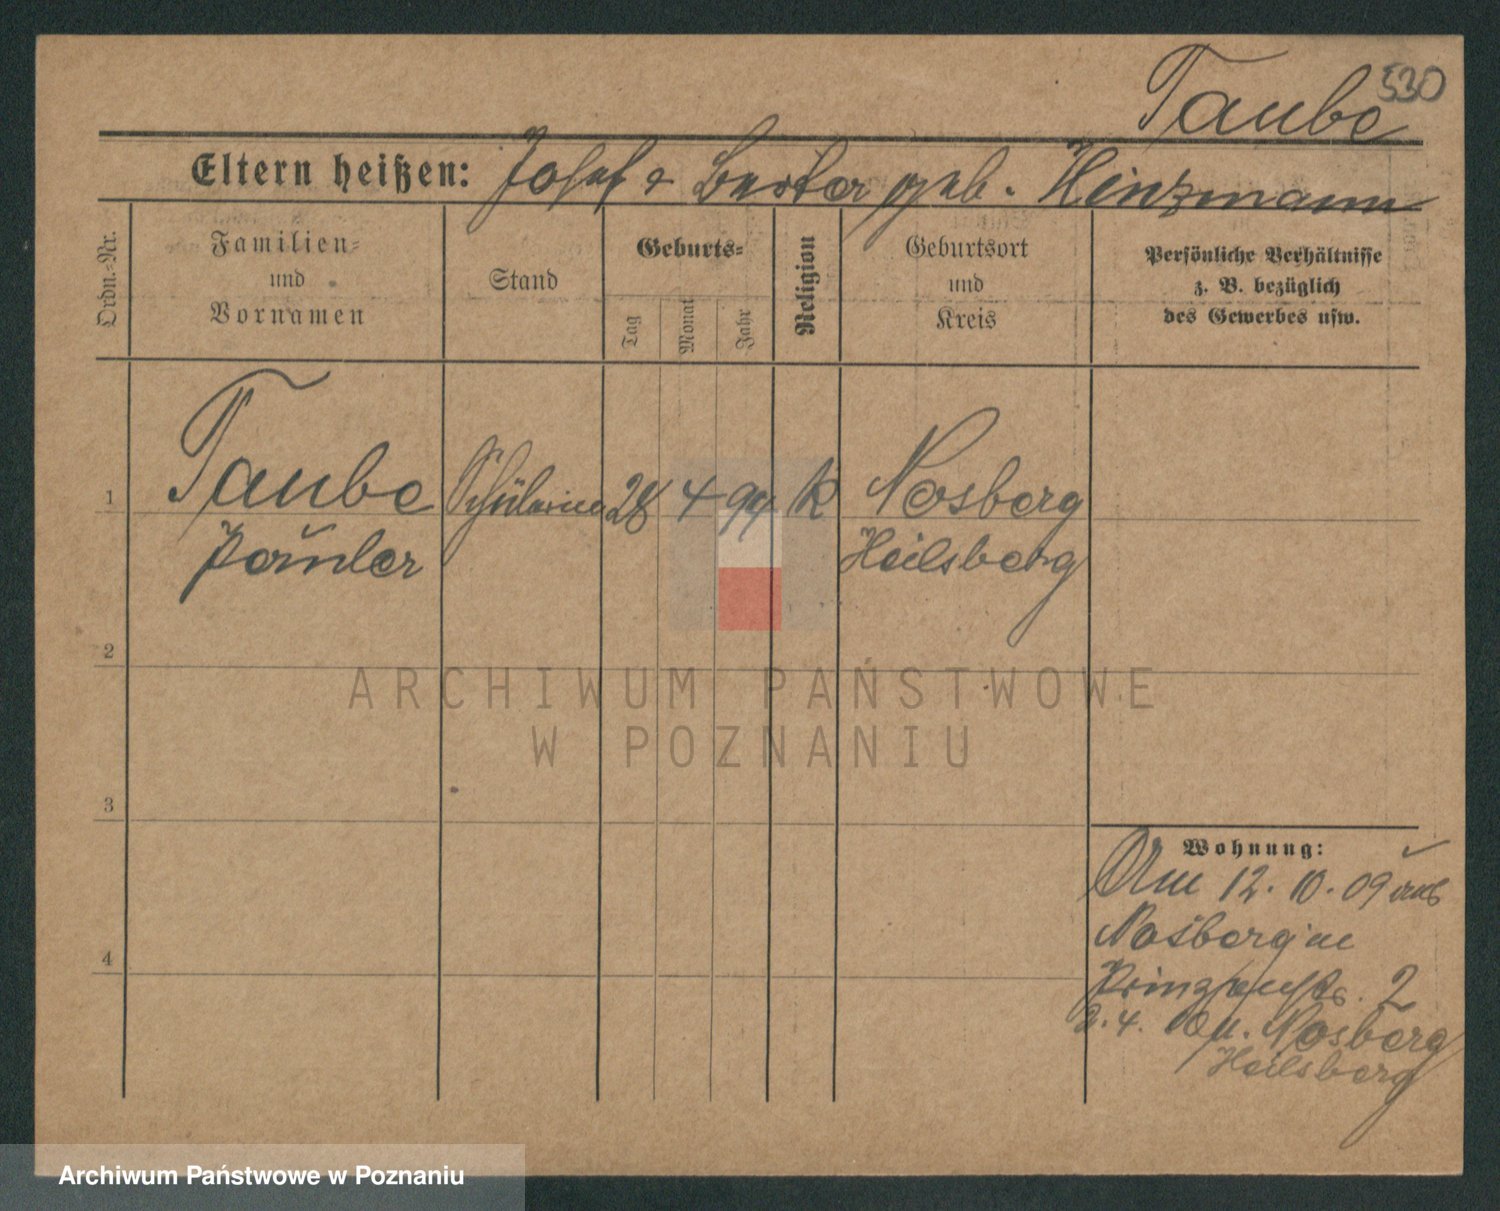 530
Taube
Eltern heißen: Josef & Berta geb. Hinzmann
Ordn.-Nr.
Familien-
und
Vornamen
Stand
Geburts-
Tag
Monat
Jahr
Religion
Geburtsort
und
Kreis
Persönliche Verhältnisse
z. B. bezüglich
des Gewerbes usw.
1
Taube
Schülerin
28
4
94
k
Nosberg
Heilsberg
2
3
4
Wohnung:
Am 12. 10. 09 aus
Nosberg in
2
2. 4. 10 n. Nosberg
Heilsberg
ARCHIWUM PAŃSTWOWE
W POZNANIU
Archiwum Państwowe w Poznaniu